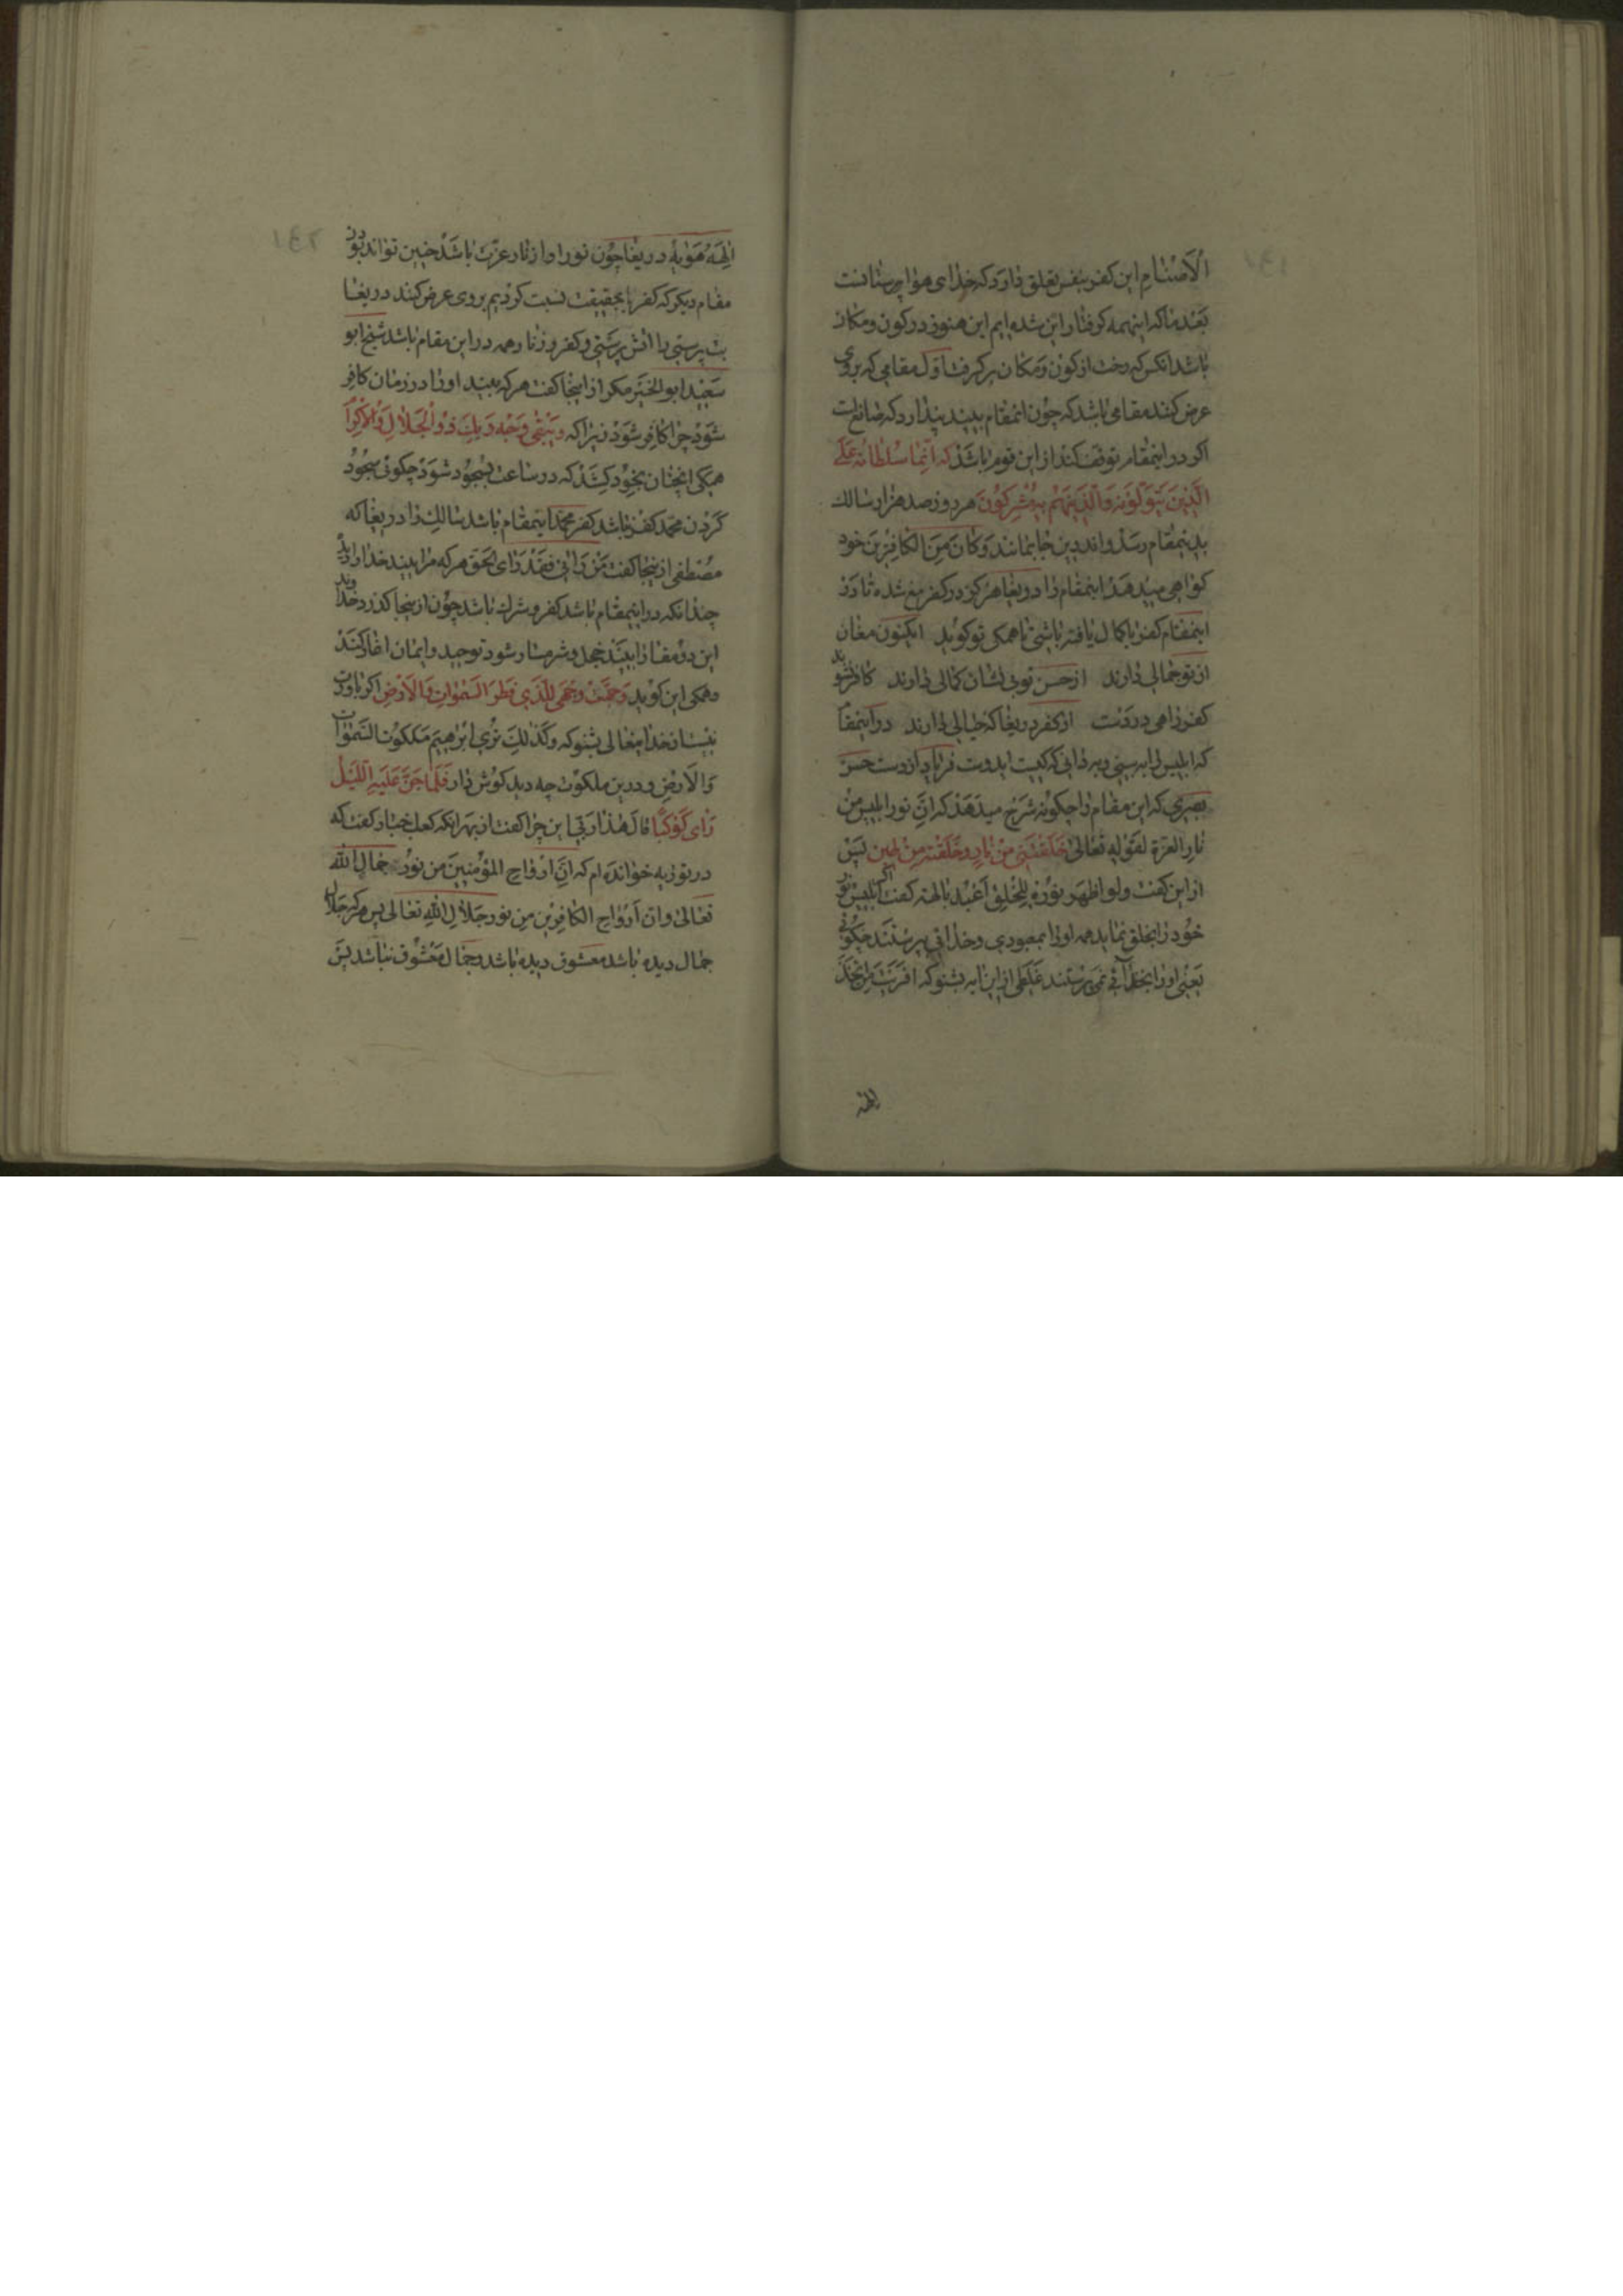 ۱٤۱
الاَصْنام این کفر بنفس تعلق دارد که خدای هوا پرستانست
بعد ما که اینهمه کرفتار این شده ایم این هنوز در کون و مکان
باشد انکس که رخت از کون و مکان بر کرفت اوّل مقامی که بروی
عرض کنند مقامی باشد که چون انمقام بیند پندارد که صانع است
اکر در اینمقام توقف کند از این قوم باشد که انّما سُلطانُهُ عَلَی
الَّذینَ یَتَوَلَّوْنَهُ وَالَّذینَهُمْ بِهِ مُشْرِکُونَ هر روز صد هزار سالک
بدینمقام رسد و اندرین جا بمانند وَکانَ مِنَ الکافِرینَ خود
کواهی میدهد اینمقام را دریغا هرکز در کفر مغ شده تا در
اینمقام کفر باکمال یافته باشی تا همکی تو کوید اکنون مغان
از تو جمالی دارند از حسن تو بی نشان کمالی دارند کافر شوید
کفر راهی در دست از کفر دریغا که خیالی دارند در اینمقام
که ابلیس را به بینی و به دانی که کیست ای دوست فریاد از دست حسن
بصری که این مقام را چکونه شرح میدهد که انَّ نور ابلیس من
نار العزة لقوله تعالیٰ خَلَقْتَنی مِنْ نارٍ وخَلَقْتَهُ مِنْ طینٍ پس
از این کفت ولو اظهر نوره للخلق اعبد بالهته کفت اکر ابلیس نور
خود را بخلق نماید همه او را بمعبودی و خدائی پرستند چکونی
یعنی او را بخدائی نمی پرستند غلطی از این ایه بشنو که افرَیتَ مَنِ اتّخذ
الهه
۱٤۲
الِهَهُ هَوٰیهُ دریغا چون نور او از نار عزّت باشد خبین تواند بود در
مقام دیکر که کفر را بحقیقت نسبت کردیم بروی عرض کنند دریغا
بت پرستی و اتش پرستی و کفر و زنار همه در این مقام باشد شیخ ابو
سعید ابو الخیر مکر از اینجا کفت هر که بیند او را در زمان کافر
شود چرا کافر شود زیرا که ویَبْقٰی وَجْهُ رَبِّکَ ذُو الْجَلالِ وَالاِکْرامِ
همکی انچنان بخود کشد که در ساعت بسجود شود چکونی سجود
کردن محمد کفر باشد کفر محمد اینمقام باشد سالک را دریغا که
مصطفی از ینجا کفت مَن رَانی فقد رَای الحق هر که مرا بیند خدا را دید
چندانکه در اینمقام باشد کفر و شرک باشد چون از ینجا کذرد خداوند
این دو مقام را بیند خجل و شرمسار شود توحید و ایمان اغاز کند
و همکی این کوید وَجَّهْتُ وَجْهِیَ لِلَّذی فَطَرَ السَّمٰواتِ وَالاَرْضَ اکر باورت
نیست از خدایتعالی بشنو که وکَذٰلِکَ نُری اِبْرٰهیمَ مَلَکُوتَ السَّمٰواتِ
وَالاَرْضِ و درین ملکوت چه دید کوش دار فَلَمّا جَنَّ عَلَیْهِ اللَّیْلُ
رَای کَوْکَبًا قالَ هٰذا رَبّی این چرا کفت از بهر انکه کعب احبار کفت که
در توریه خوانده ام که انَّ ارواح المؤمنین من نور جمال الله
تعالیٰ وان اَرواح الکافرین من نور جَلالِ الله تعالی پس هرکه جلال
جمال دیده باشد معشوق دیده باشد و جمال معشوق نباشد پس